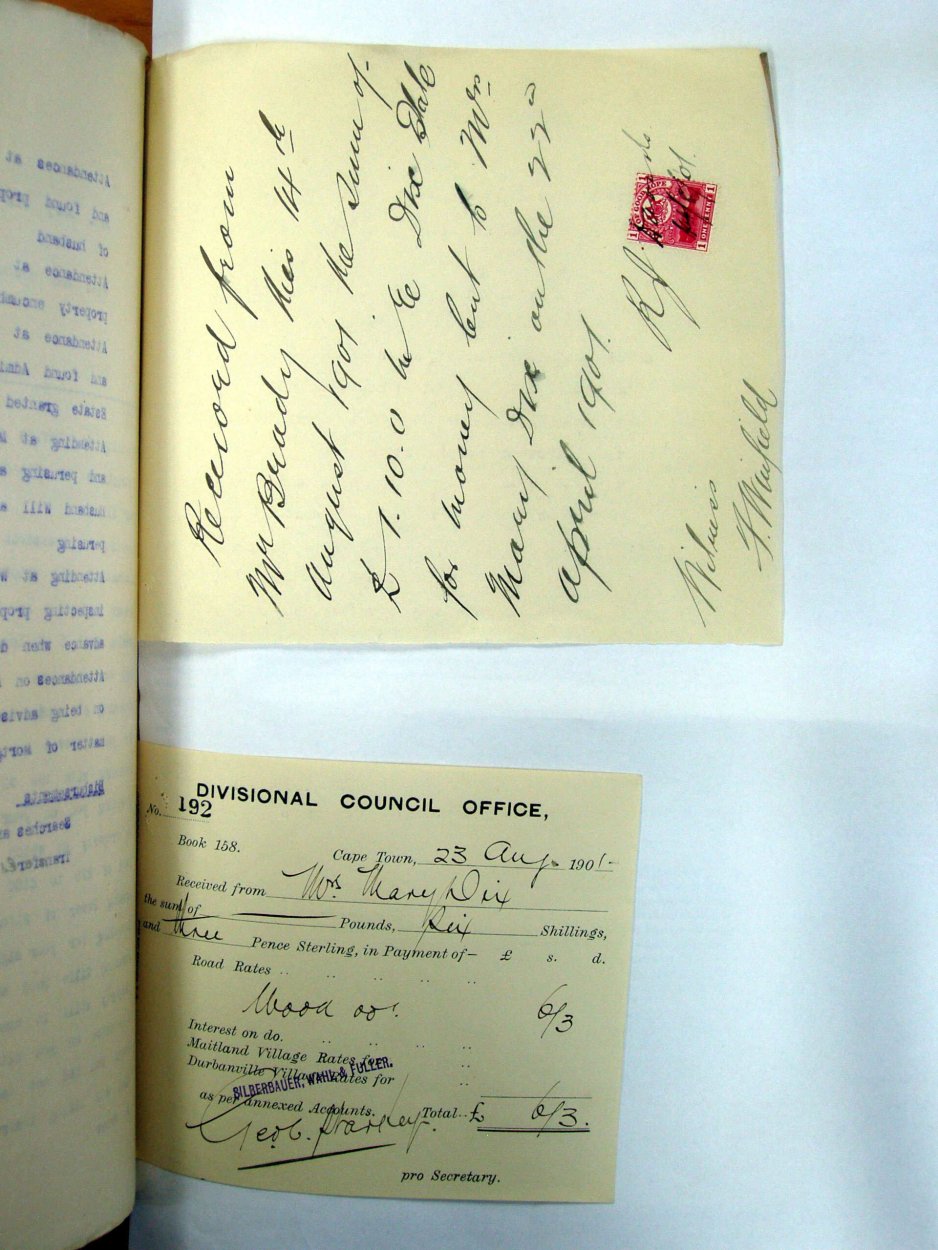 Attendances at
and found prop
of husband
Attendance at
property encumb
Attendance at
and found Admi
Estate granted
Attending at
and perusing a
Husband Will a
perusing
Attending at W
inspecting prop
advance when d
Attendances on
on being advis
matter of Mortg
Disbursements
Searches a
Transfer
Received from
Mr Brady this 14th
August 1901 the sum of
£1.10.0 in re Dix Estate
for money lent to Mrs
Mary Dix on the 22
April 1901.
OF GOOD HOPE
ONE PENNY
Witness
DIVISIONAL COUNCIL OFFICE,
No. 192
Book 158.
Cape Town, 23 Aug. 1901-
Received from Mrs Mary Dix
the sum of Pounds, Six Shillings,
and three Pence Sterling, in Payment of— £ s. d.
Road Rates .. .. .. .. ..
6/3
Interest on do. .. .. .. ..
Maitland Village Rates for ..
Durbanville Village Rates for ..
SILBERBAUER, WAHL & FULLER.
as per annexed Accounts. Total.. £ 6/3.
pro Secretary.